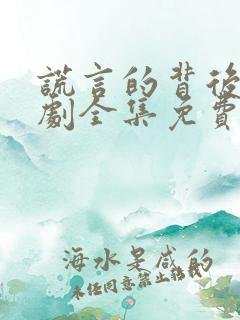 謊言的背後
劇全集免費
海水是咸的
未经同意禁止转载